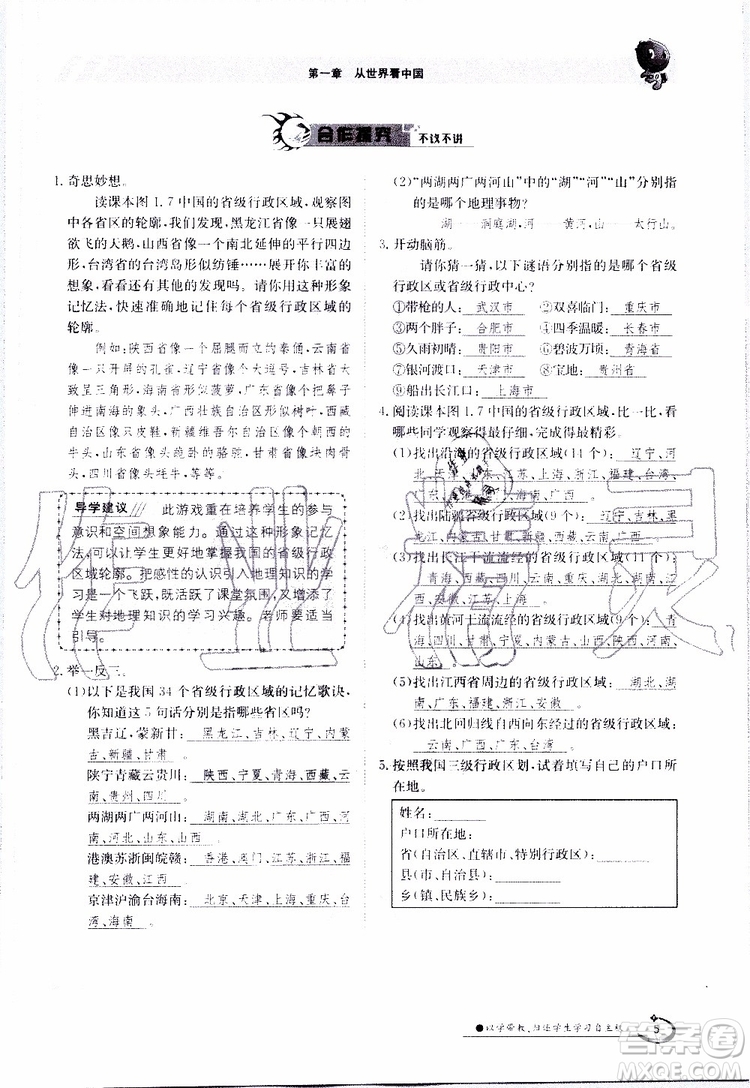 第一章 从世界看中国
合作探究 不议不讲
1. 奇思妙想。
读课本图 1.7 中国的省级行政区域，观察图
中各省区的轮廓。我们发现，黑龙江省像一只展翅
欲飞的天鹅，山西省像一个南北延伸的平行四边
形，台湾省的台湾岛形似纺锤……展开丰富的
想象，看看它们还像什么？你可以用这种形象
记忆法，快速准确地记住每个省级行政区域的
轮廓。
例如：陕西省像一个屈腿而立的秦俑，云南省
像一只开屏的孔雀，辽宁省像一个大逗号，吉林省大
致呈三角形，海南省像菠萝，广东省像一个把鼻子
伸进海南的象头，广西壮族自治区形似树叶，西藏
自治区像一只皮鞋，新疆维吾尔自治区形似一个
牛头，青海省像疲卧的骆驼，甘肃省像一块哑铃骨
头，四川省像头牦牛，等等。
导学建议/// 此游戏重在培养学生的参与
意识和空间想象能力。通过这种形象记忆
法，可以让学生更好地掌握我国的省级行政
区域轮廓。把感性的认识引入地理知识的学
习是一个飞跃，既活跃了课堂氛围，又增添了
学生对地理知识的学习兴趣。老师要适当
引导。
2. 举一反三。
(1)以下是我国 34 个省级行政区域的记忆歌诀，
你知道这 5 句话分别是指哪些省区吗？
黑吉辽，蒙新甘： 黑龙江、吉林、辽宁、内蒙
古、新疆、甘肃
陕宁青藏云贵川： 陕西、宁夏、青海、西藏、云
南、贵州、四川
两湖两广两河山： 湖南、湖北、广东、广西、河
南、河北、山东、山西
港澳苏浙闽皖赣： 香港、澳门、江苏、浙江、福
建、安徽、江西
京津沪渝台海南： 北京、天津、上海、重庆、台
湾、海南
(2)“两湖两广两河山”中的“湖”“河”“山”分别指
的是哪个地理事物？
湖——洞庭湖，河——黄河，山——太行山。
3. 开动脑筋。
请你猜一猜，以下谜语分别指的是哪个省级
行政区或省级行政中心？
①带枪的人： 武汉市 ②双喜临门： 重庆市
③两个胖子： 合肥市 ④四季温暖： 长春市
⑤久雨初晴： 贵阳市 ⑥碧波万顷： 青海省
⑦银河渡口： 天津市 ⑧宝地： 贵州省
⑨船出长江口： 上海市
4. 阅读课本图 1.7 中国的省级行政区域，比一比，看
哪些同学观察得最仔细，完成得最精彩。
(1)找出沿海的省级行政区域(14 个)： 辽宁、河
(2)找出陆邻省级行政区域(9 个)： 辽宁、吉林、黑
(3)找出长江干流流经的省级行政区域(11 个)：
(4)找出黄河干流流经的省级行政区域(9 个)： 青
海、四川、甘肃、宁夏、内蒙古、陕西、山西、河南、
山东
(5)找出江西省周边的省级行政区域： 湖北、湖
南、广东、福建、浙江、安徽
(6)找出北回归线自西向东经过的省级行政区域：
云南、广西、广东、台湾
5. 按照我国三级行政区划，试着填写自己的户口所
在地。
姓名：
户口所在地：
省(自治区、直辖市、特别行政区)：
县(市、自治县)：
乡(镇、民族乡)：
5